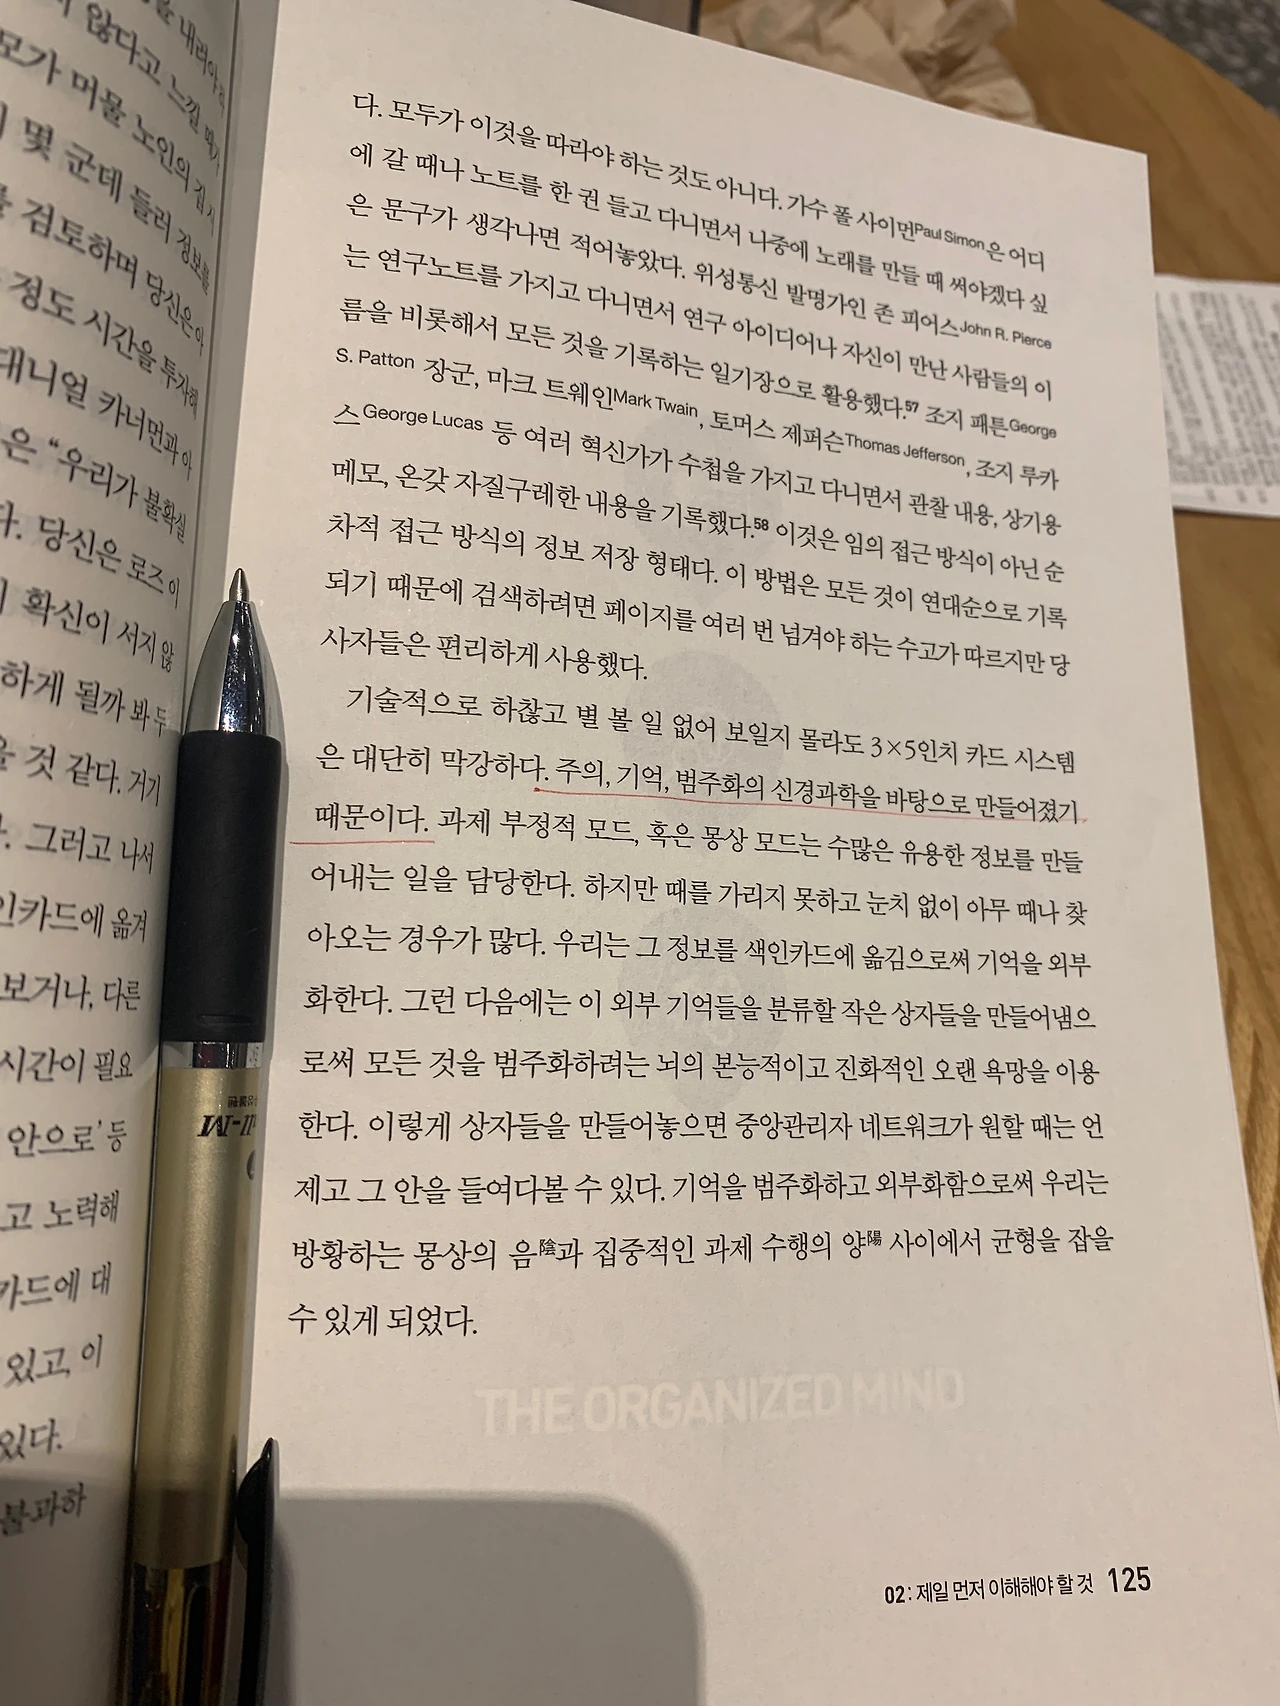 내려
않다고 느낄 때가
모가 머물 노인의 집
몇 군데 들러 정보를
검토하며 당신은 아
정도 시간을 투자해
대니얼 카너먼과 아
은 “우리가 불확실
다. 당신은 로즈 이
확신이 서지 않
하게 될까 봐 두
것 같다. 거기
. 그러고 나서
인카드에 옮겨
보거나, 다른
시간이 필요
안으로’ 등
고 노력해
카드에 대
있고, 이
있다.
불과하
다. 모두가 이것을 따라야 하는 것도 아니다. 가수 폴 사이먼Paul Simon은 어디
에 갈 때나 노트를 한 권 들고 다니면서 나중에 노래를 만들 때 써야겠다 싶
은 문구가 생각나면 적어놓았다. 위성통신 발명가인 존 피어스John R. Pierce
는 연구노트를 가지고 다니면서 연구 아이디어나 자신이 만난 사람들의 이
름을 비롯해서 모든 것을 기록하는 일기장으로 활용했다.57 조지 패튼George
S. Patton 장군, 마크 트웨인Mark Twain, 토머스 제퍼슨Thomas Jefferson, 조지 루카
스George Lucas 등 여러 혁신가가 수첩을 가지고 다니면서 관찰 내용, 상기용
메모, 온갖 자질구레한 내용을 기록했다.58 이것은 임의 접근 방식이 아닌 순
차적 접근 방식의 정보 저장 형태다. 이 방법은 모든 것이 연대순으로 기록
되기 때문에 검색하려면 페이지를 여러 번 넘겨야 하는 수고가 따르지만 당
사자들은 편리하게 사용했다.
기술적으로 하찮고 별 볼 일 없어 보일지 몰라도 3×5인치 카드 시스템
은 대단히 막강하다. 주의, 기억, 범주화의 신경과학을 바탕으로 만들어졌기
때문이다. 과제 부정적 모드, 혹은 몽상 모드는 수많은 유용한 정보를 만들
어내는 일을 담당한다. 하지만 때를 가리지 못하고 눈치 없이 아무 때나 찾
아오는 경우가 많다. 우리는 그 정보를 색인카드에 옮김으로써 기억을 외부
화한다. 그런 다음에는 이 외부 기억들을 분류할 작은 상자들을 만들어냄으
로써 모든 것을 범주화하려는 뇌의 본능적이고 진화적인 오랜 욕망을 이용
한다. 이렇게 상자들을 만들어놓으면 중앙관리자 네트워크가 원할 때는 언
제고 그 안을 들여다볼 수 있다. 기억을 범주화하고 외부화함으로써 우리는
방황하는 몽상의 음陰과 집중적인 과제 수행의 양陽 사이에서 균형을 잡을
수 있게 되었다.
THE ORGANIZED MIND
02: 제일 먼저 이해해야 할 것 125